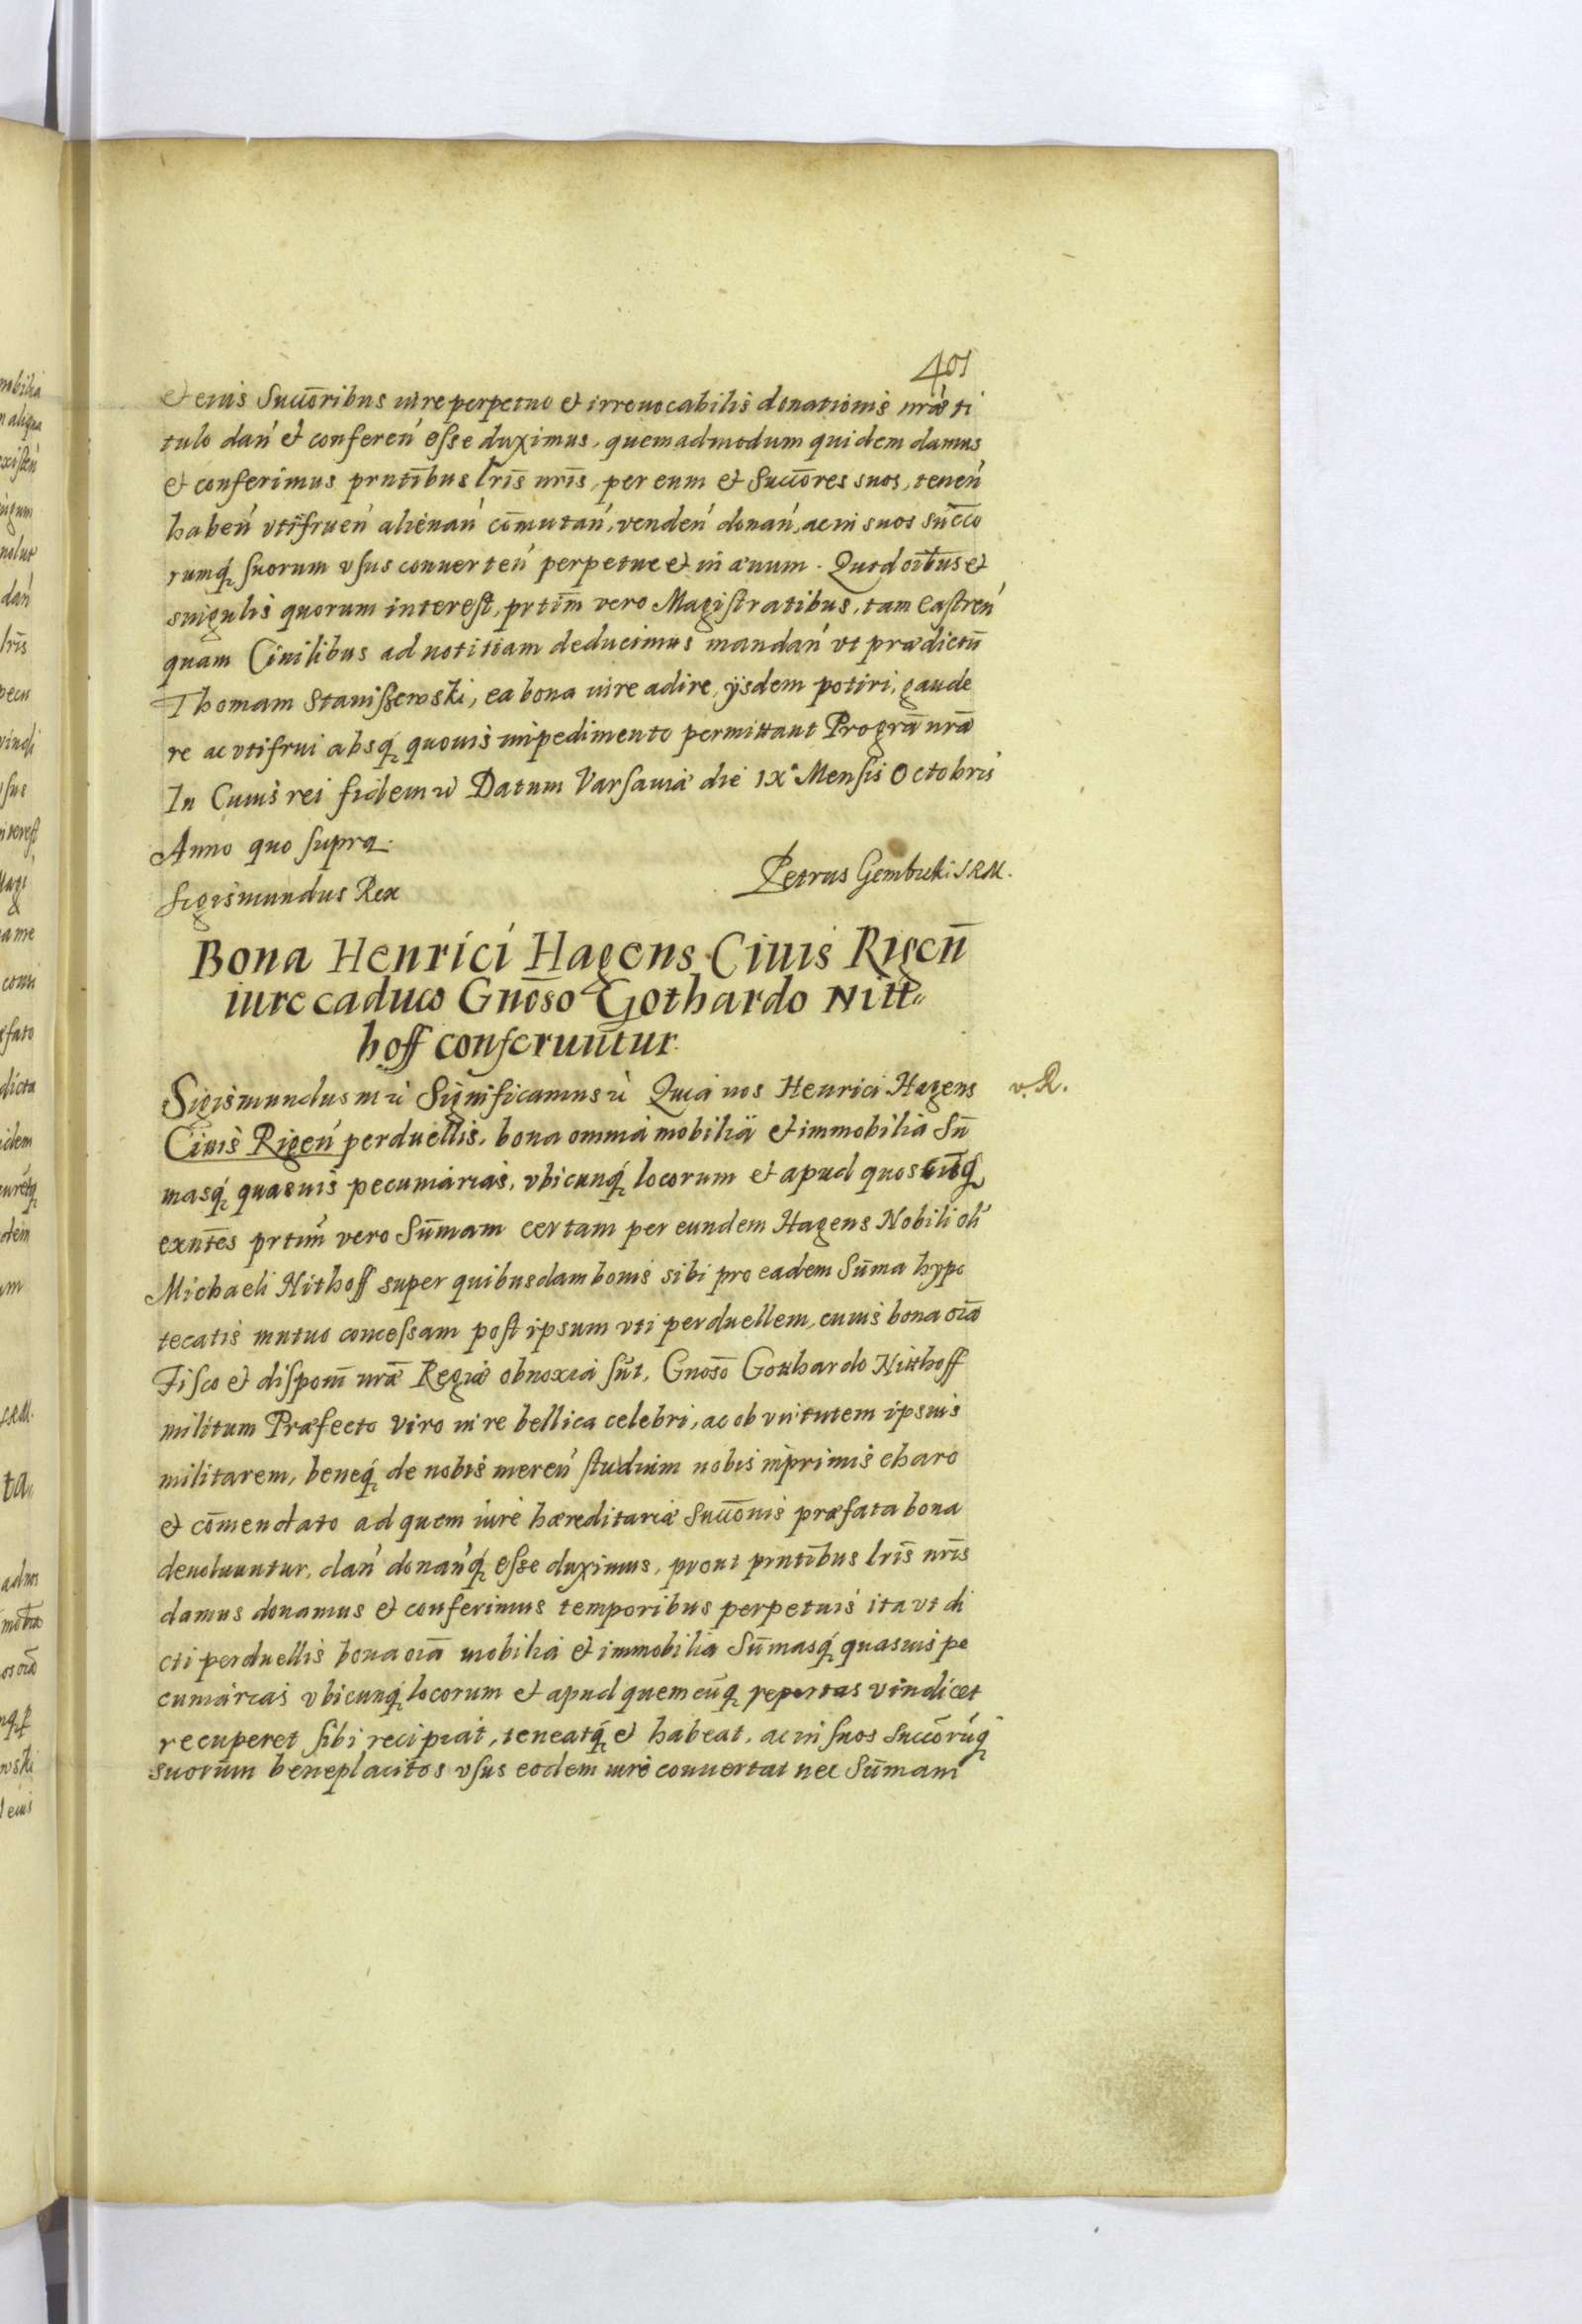 401
et eius Succōribus iure perpetuo et irreuocabilis donationis nræ̃ ti
tulo dań et confereń esse duximus, quemadmodum quidem damus
et conferimus prntĩbus lrĩs nrĩs, per eum et Succōres suos, teneń
habeń vtifrueń alienań cōmutań, vendeń donań, ac in suos Succō
rumq́ suorum vsus conuerteń perpetue et in æuum. Quod oĩbus et
singulis quorum interest, prtĩm vero Magistratibus, tam Castreń
quam Ciuilibus ad notitiam deducimus mandań vt prædictū
Thomam Staniszewski, ea bona iure adire, ÿsdem potiri, gaude
re ac vtifrui absq́ quouis impedimento permittant Progrã nrã
In Cuius rei fidem ẽ Datum Varsauiæ die IX° Mensis Octobris
Anno quo supra.
Sigismundus Rex
Petrus Gembicki S.R.M.
Bona Henrici Hagens Ciuis Rigeñ
iure caduco Gnōso Gothardo Nitt„
hoff conferuntur.
Sigismundus III ẽ Significamus ẽ Quia nos Henrici Hagens
v. R.
Ciuis Rigeń perduellis, bona omnia mobilia et immobilia Sū
masq́ quasuis pecuniarias, vbicunq́ locorum et apud quoscūq́
exñtes prtim̃ vero Sūmam certam per eundem Hagens Nobili olī
Michaeli Nithoff super quibusdam bonis sibi pro eadem Sūma hypo
tecatis mutuo concessam post ipsum vti perduellem, cuius bona oīa
Fisco et disponī nræ̃ Regiæ obnoxia sūt, Gnosō Gotthardo Nitthoff
militum Præfecto viro in re bellica celebri, ac ob virtutem ipsius
militarem, beneq́ de nobis mereń studium nobis inprimis charo
et cōmendato ad quem iure hæreditariæ Succōnis præfata bona
deuoluuntur, dań donańq́ esse duximus, prout prntĩbus lrĩs nrĩs
damus donamus et conferimus temporibus perpetuis ita vt di
cti perduellis bona oīa mobilia et immobilia Sūmasq́ quasuis pe
cuniarias vbicunq́ locorum et apud quemcūq́ repertas vindicet
recuperet sibi recipiat, teneatq́ et habeat, ac in suos Succōrūq́
suorūm beneplacitos vsus eodem iure conuertat nec Sūmam